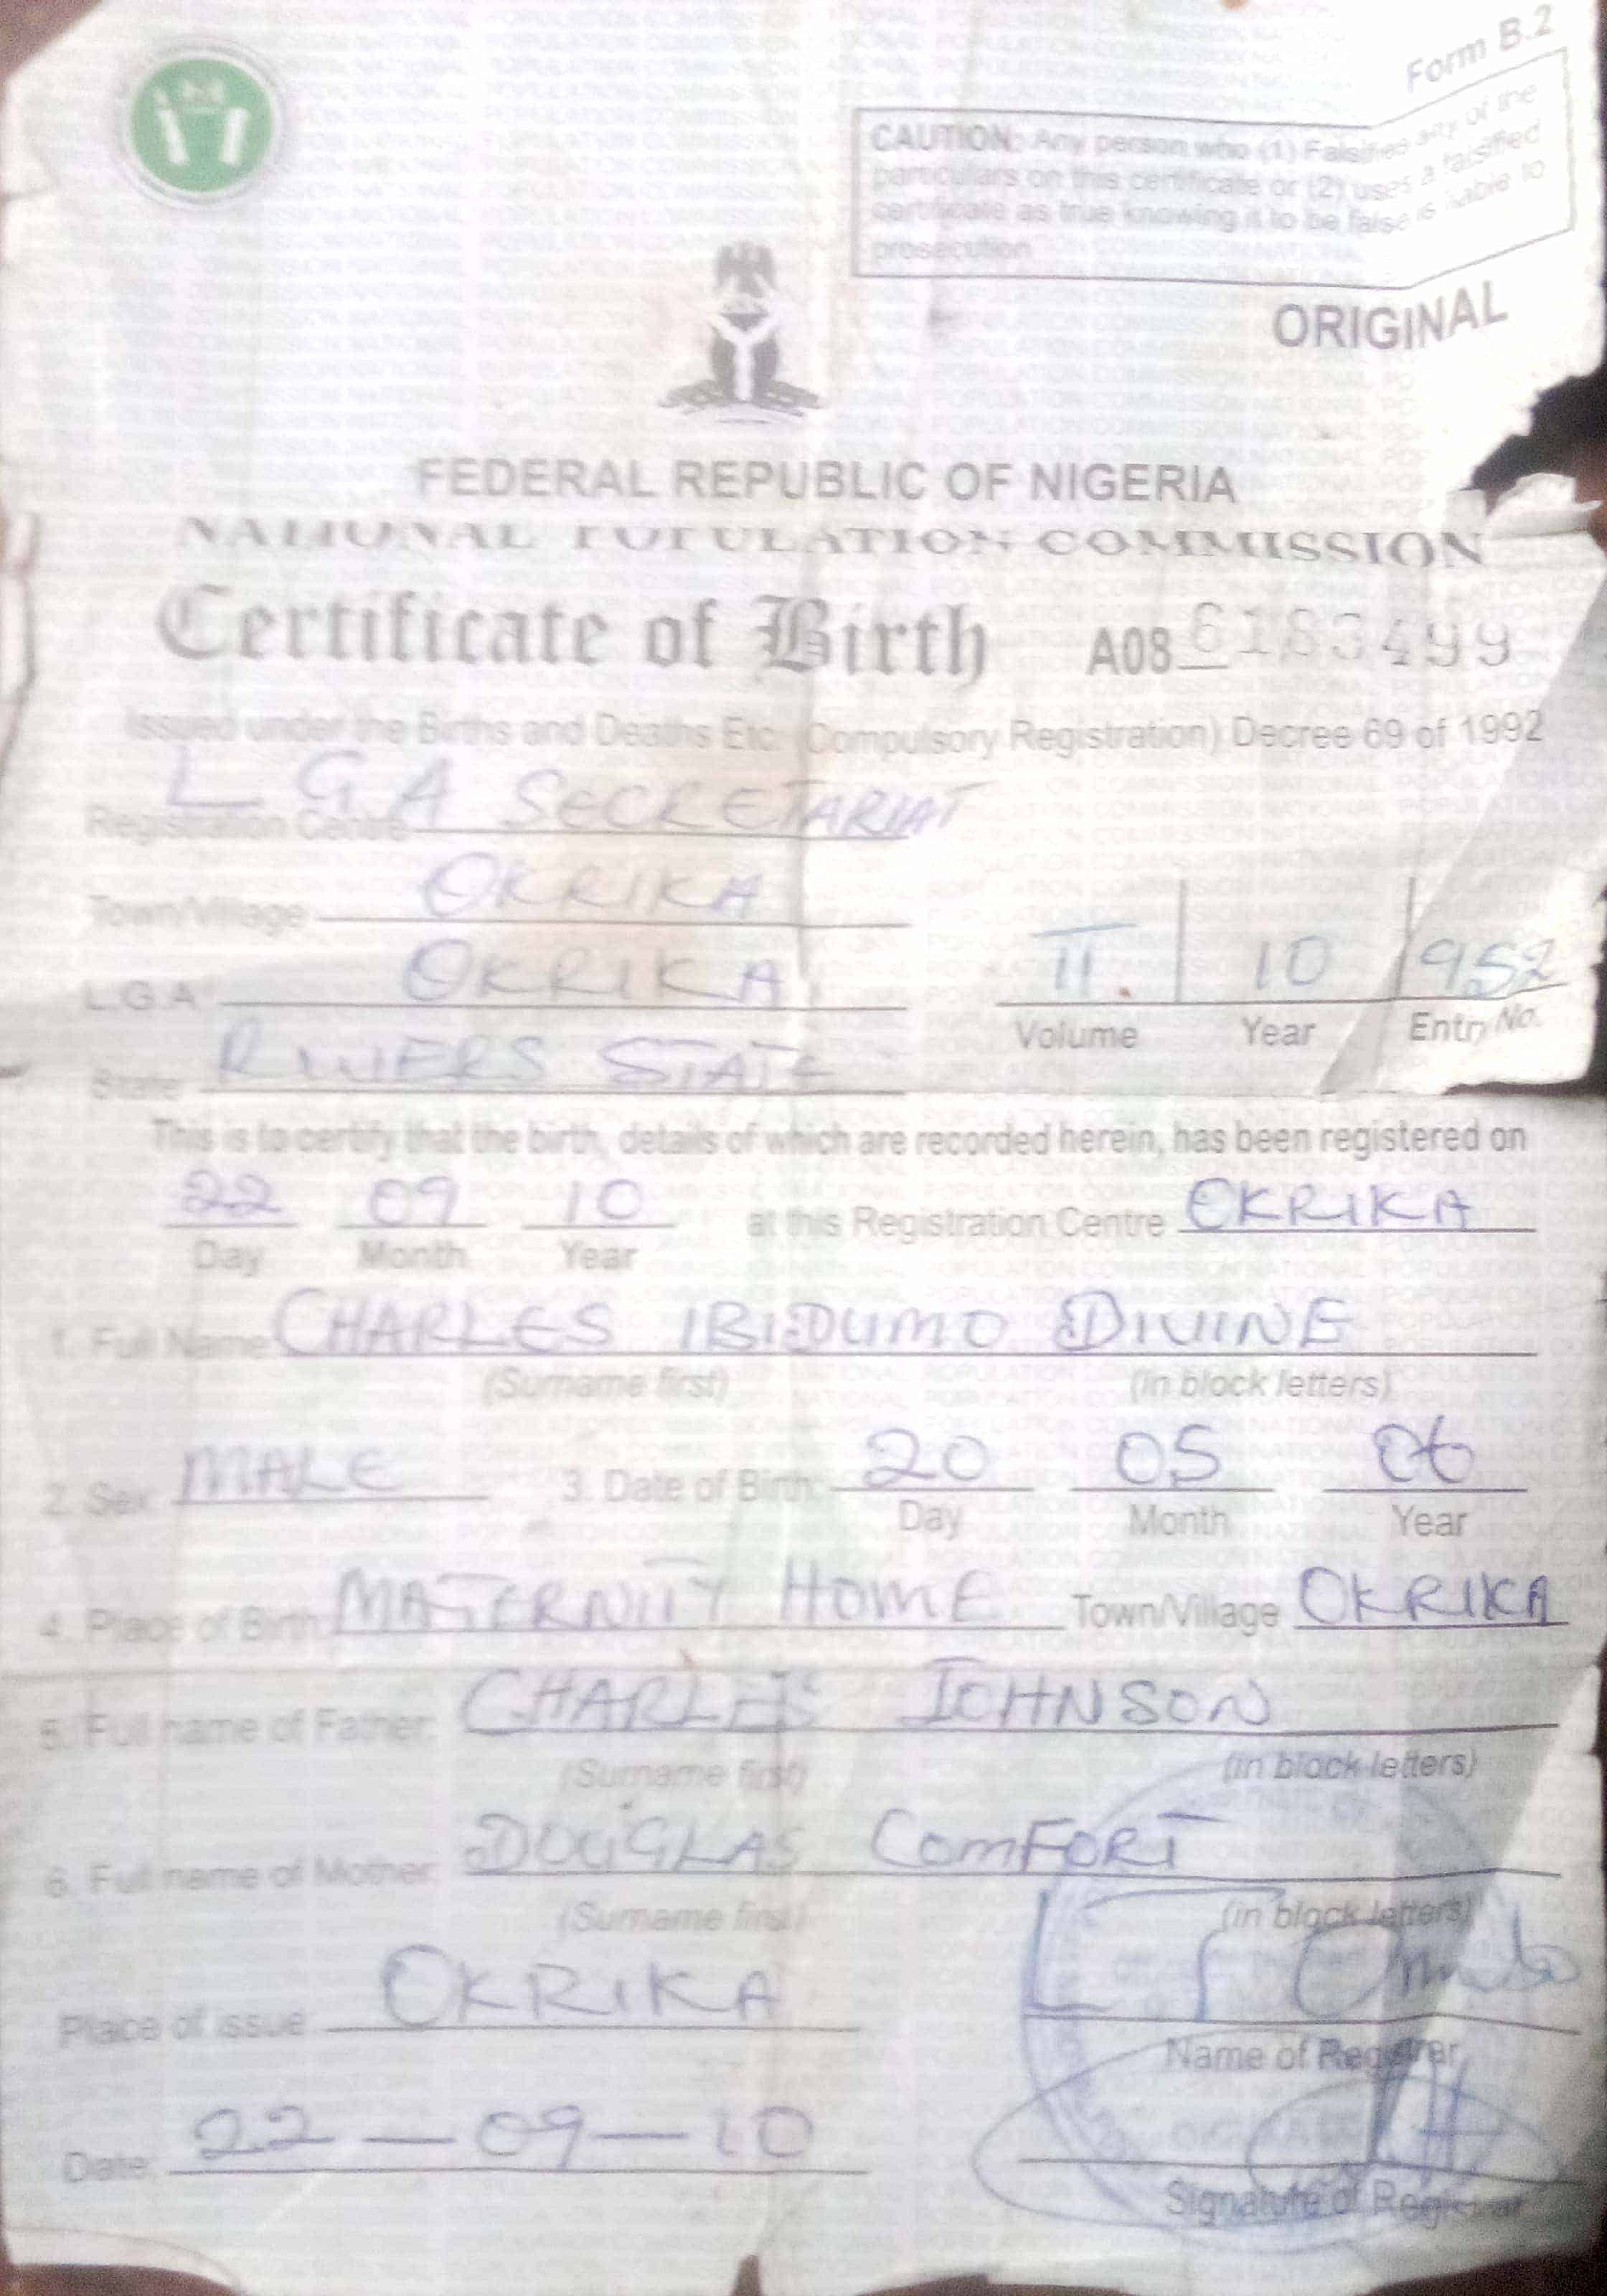 Form B.2
CAUTION: Any person who (1) Falsifies any of the
particulars on this certificate or (2) uses a falsified
certificate as true knowing it to be false is liable to
prosecution
ORIGINAL
FEDERAL REPUBLIC OF NIGERIA
NATIONAL POPULATION COMMISSION
Certificate of Birth A08 6183499
Issued under the Births and Deaths Etc. (Compulsory Registration) Decree 69 of 1992
Registration Centre L G A SECRETARIAT
Town/Village OKRIKA
L.G.A OKRIKA II. 10 952
Volume Year Entry No.
State RIVERS STATE
This is to certify that the birth, details of which are recorded herein, has been registered on
22 09 10 at this Registration Centre OKRIKA
Day Month Year
1. Full Name CHARLES IBIDUMO DIVINE
(Surname first) (in block letters)
2. Sex MALE 3. Date of Birth: 20 05 06
Day Month Year
4. Place of Birth MATERNITY HOME Town/Village OKRIKA
5. Full name of Father: CHARLES JOHNSON
(Surname first) (in block letters)
6. Full name of Mother: DOUGLAS COMFORT
(Surname first) (in block letters)
Place of issue OKRIKA
Name of Registrar
Date: 22-09-10
Signature of Registrar